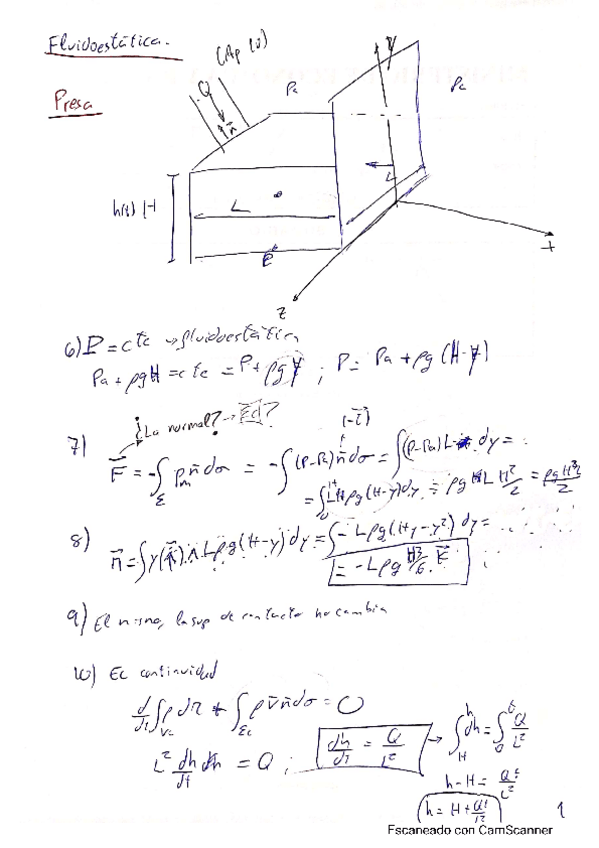 Fluidoestática.
Presa
Q (Ap(v)
n
Pa
Pa
y
h(t) H
L
L
x
z
6) P = cte → fluidoestática
Pa + ρgH = cte = P + ρgy ; P = Pa + ρg(H-y)
¿La normal? → Ec1?
(-i)
7) F = -∫ Pm n dσ = -∫(P-Pa) n dσ = ∫(P-Pa) L dy =
Σ
= ∫ L ρg(H-y)dy = ρg L H²/2 = ρgH³/2
8) M = ∫ y(j) ∧ Lρg(H-y) dy = ∫ -Lρg(Hy-y²) dy =
= -Lρg H³/6 k
9) El mismo, la sup de contacto no cambia
10) Ec continuidad
d/dt ∫ ρ dΩ + ∫ ρ v n dσ = 0
Vc Σc
L² dh/dt = Q ; dh/dt = Q/L² → ∫ dh = ∫ Q/L²
h - H = Qt/L²
h = H + Qt/L²
1
Escaneado con CamScanner